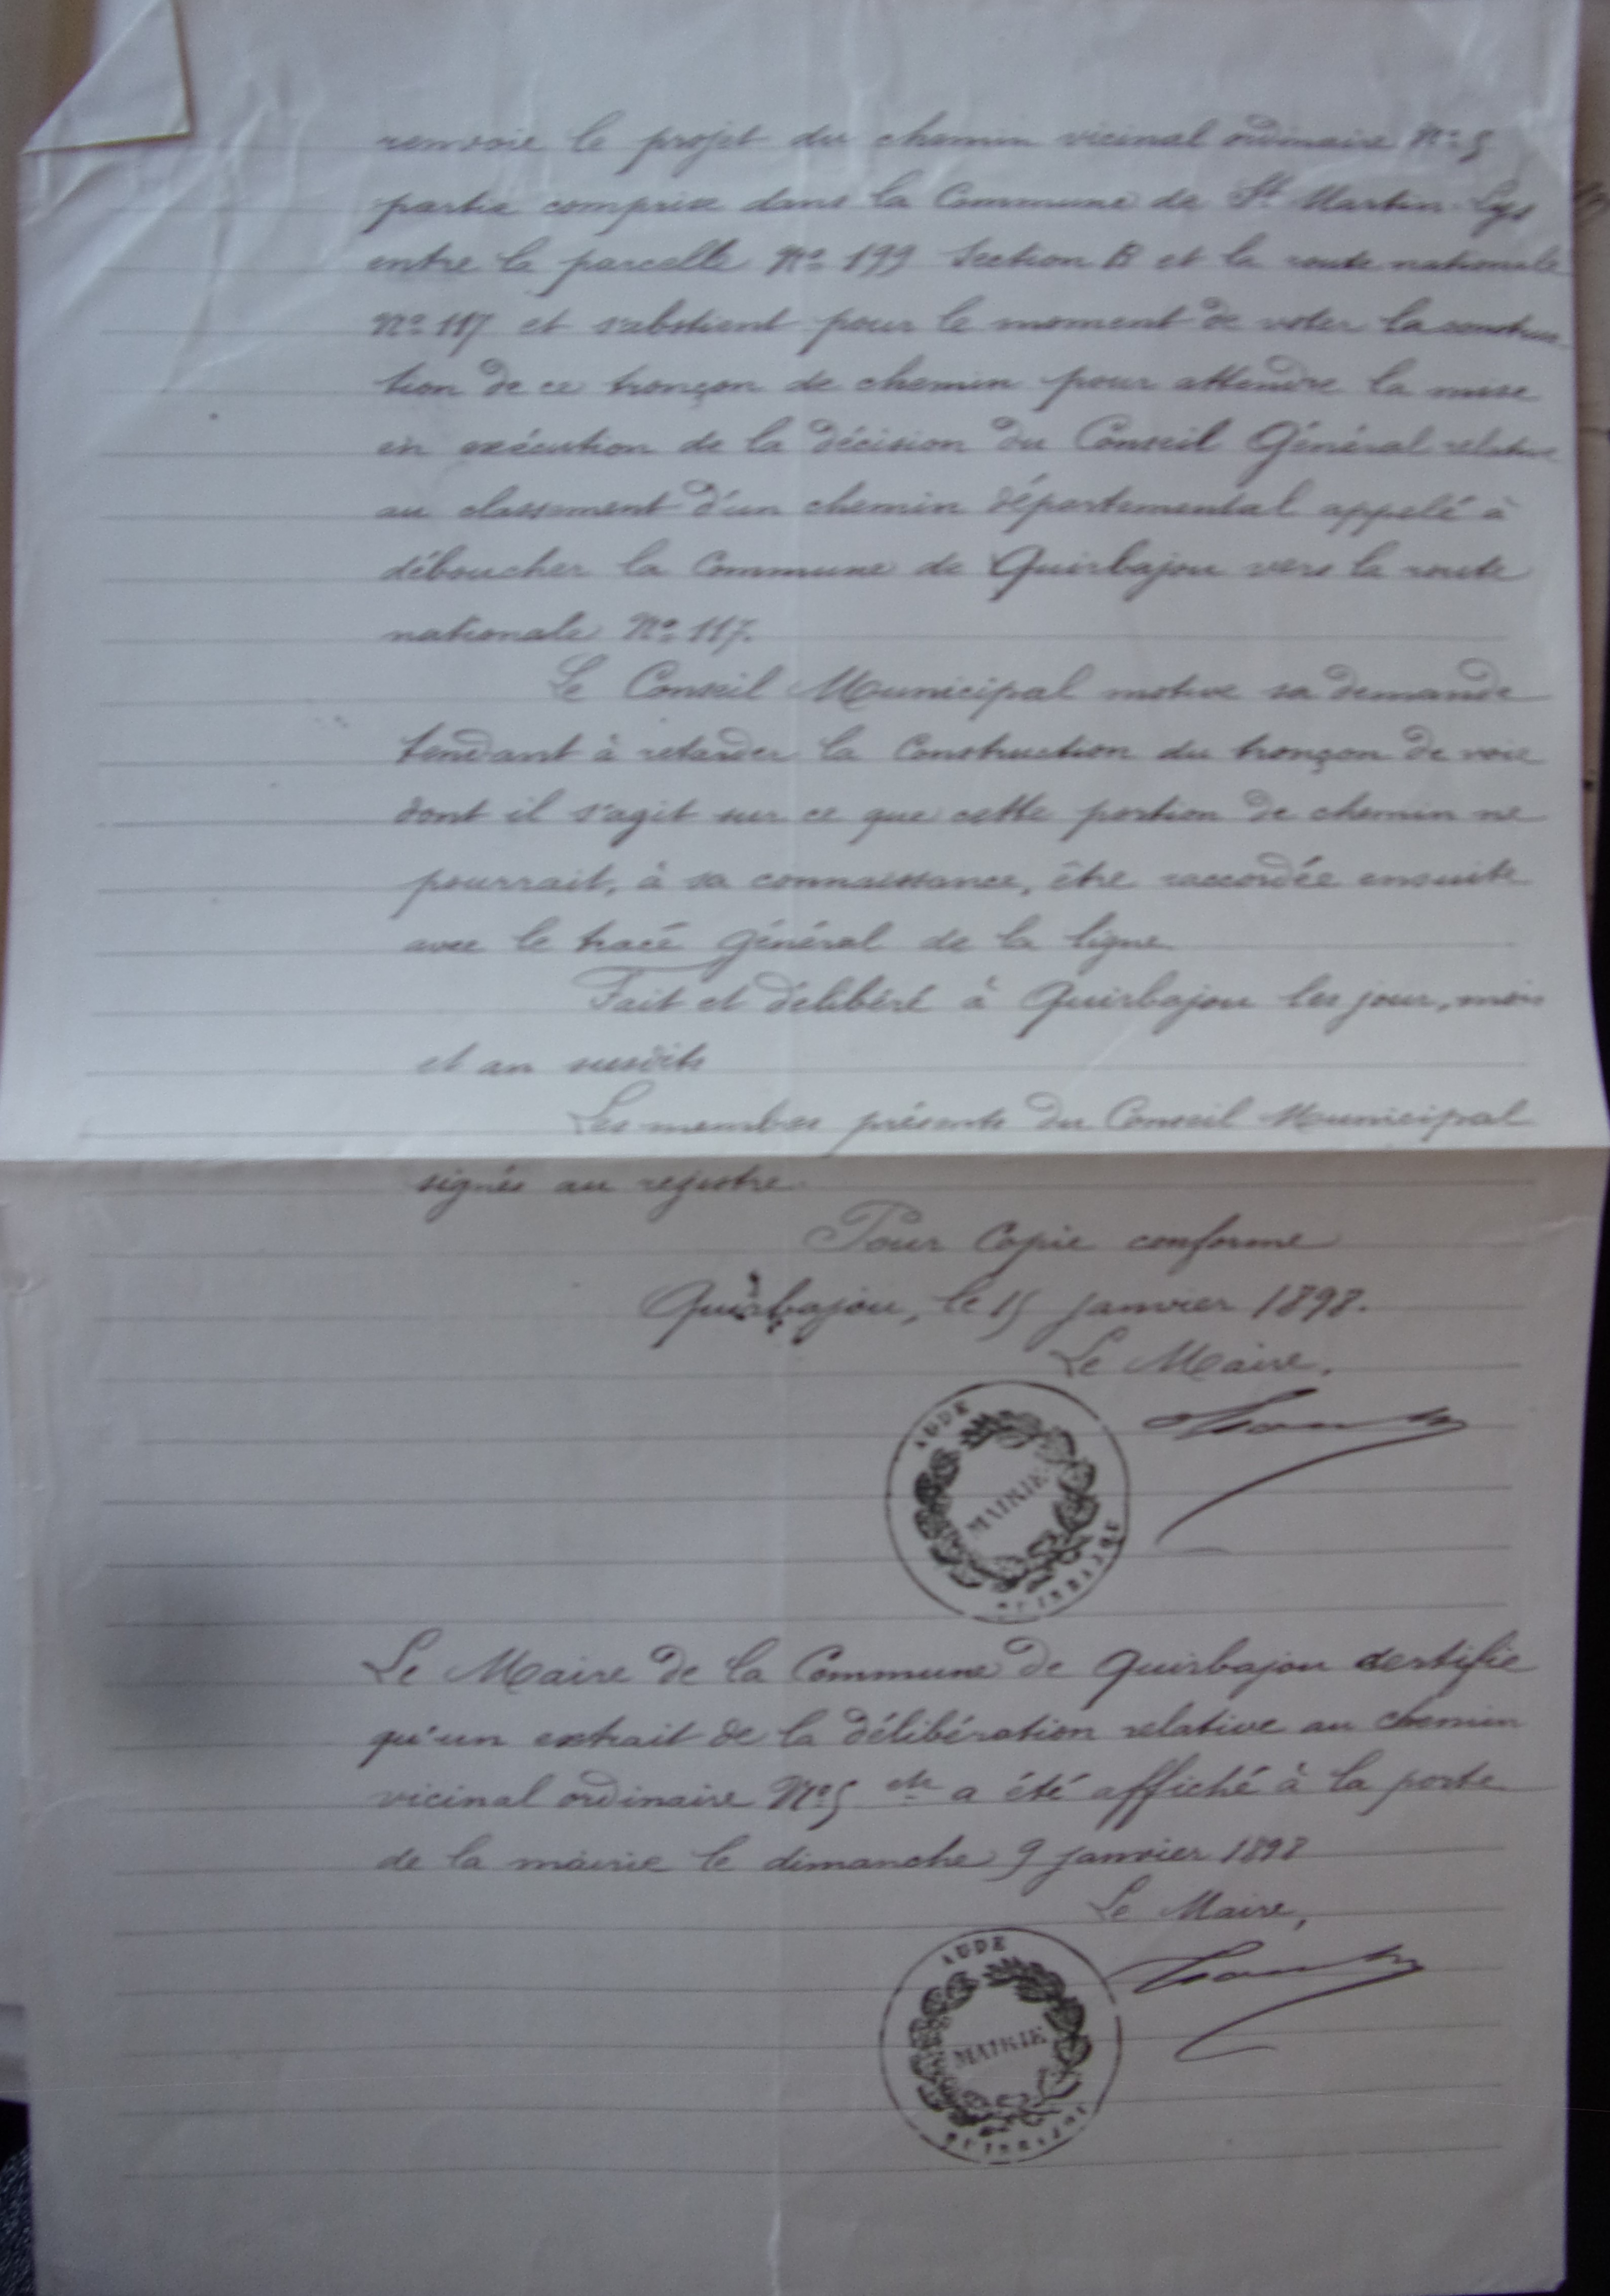 renvoie le projet du chemin vicinal ordinaire N° 5
partie comprise dans la Commune de St Martin-Lys
entre la parcelle N° 199 Section B et la route nationale
N° 117 et s'abstient pour le moment de voter la construc-
tion de ce tronçon de chemin pour attendre la mise
en exécution de la décision du Conseil Général relative
au classement d'un chemin départemental appelé à
déboucher la Commune de Quirbajou vers la route
nationale N° 117.
Le Conseil Municipal motive sa demande
tendant à retarder la Construction du tronçon de voie
dont il s'agit sur ce que cette portion de chemin ne
pourrait, à sa connaissance, être raccordée ensuite
avec le tracé Général de la ligne
Fait et délibéré à Quirbajou les jour, mois
et an susdits
Les membres présents du Conseil Municipal
signés au registre.
Pour Copie conforme
Quirbajou, le 15 janvier 1898.
Le Maire,
AUDE
MAIRIE
QUIRBAJOU
Le Maire de la Commune de Quirbajou certifie
qu'un extrait de la délibération relative au chemin
vicinal ordinaire N° 5 etc a été affiché à la porte
de la mairie le dimanche 9 janvier 1898
Le Maire,
AUDE
MAIRIE
QUIRBAJOU